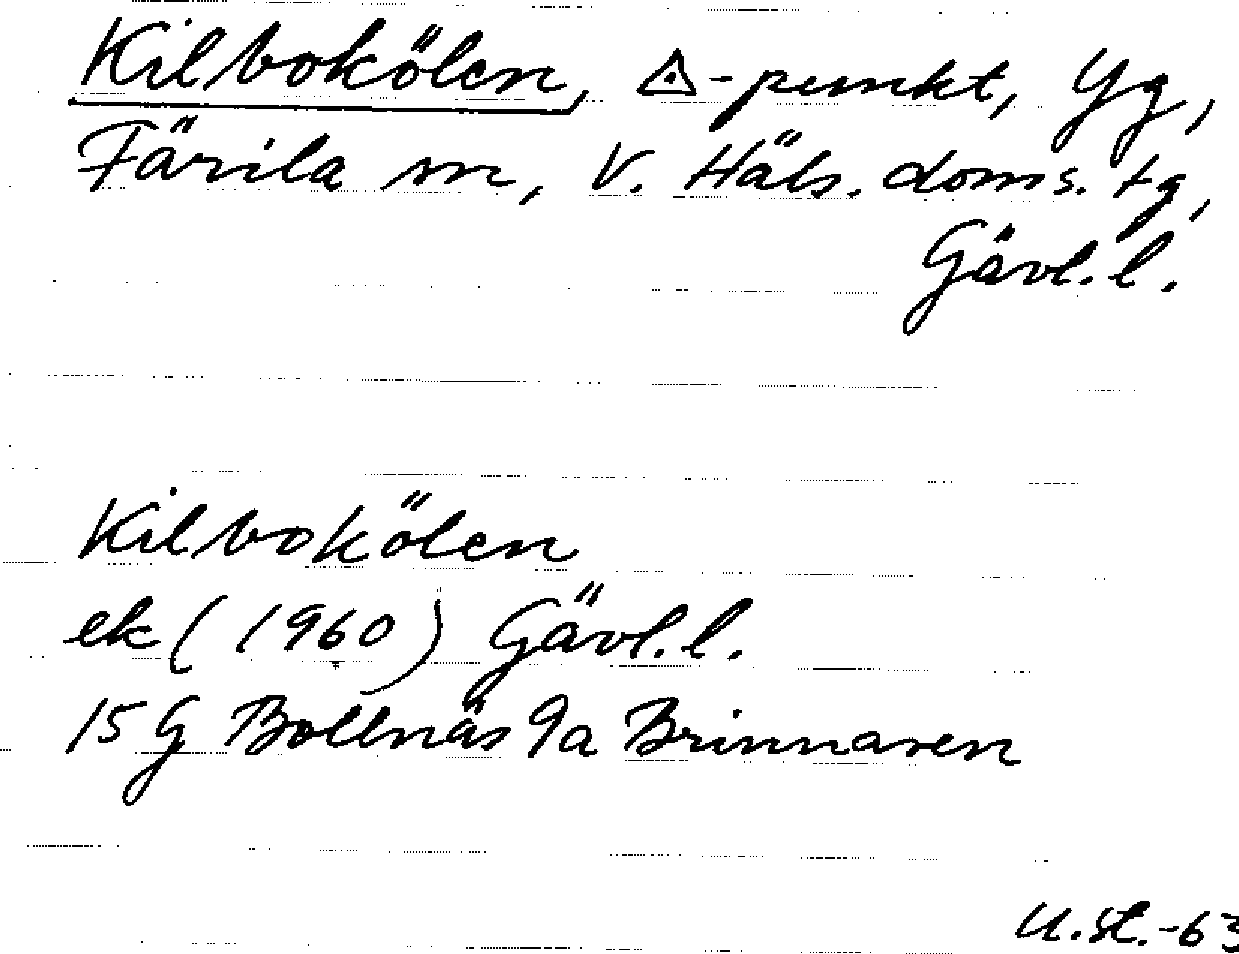 Kilbokölen, △-punkt, Yg,
Färila sn, V. Häls. doms. tg,
Gävl. l.
Kilbokölen
ek (1960) Gävl. l.
15 G Bollnäs 9a Brinnaren
U. St. -63